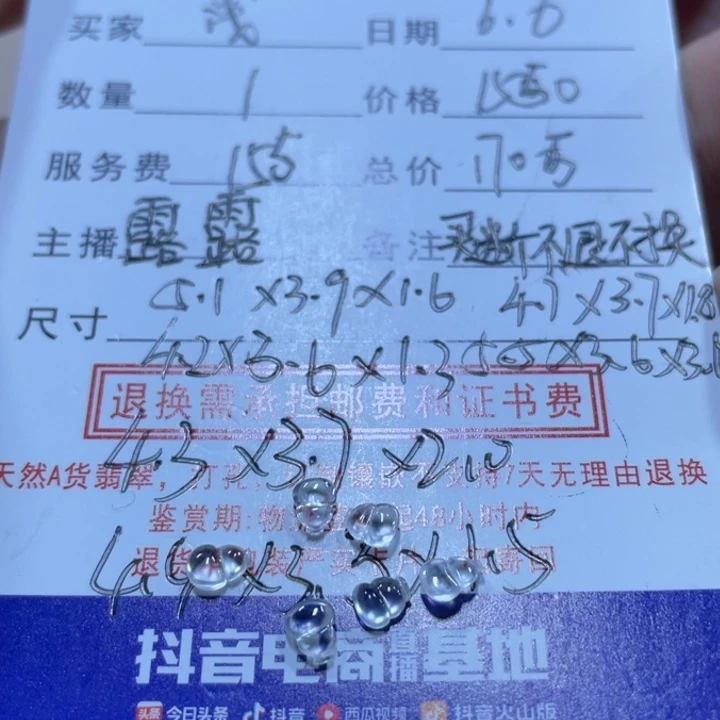 买家 日期 6.6
数量 1 价格 1550
服务费 155 总价 170
主播 露露 备注 买断不退不换
尺寸 5.1×3.9×1.6 4.7×3.7×1.8
4.2×3.6×1.3 5.5×3.6×3.
退换需承担邮费和证书费
4.3×3.7×2.10
天然A货翡翠, 打孔 镶嵌不支持7天无理由退换
鉴赏期:物 48小时内
4.9×3. ×1.5
退货
抖音电商直播基地
头条 今日头条 抖音 西瓜视频 抖音火山版